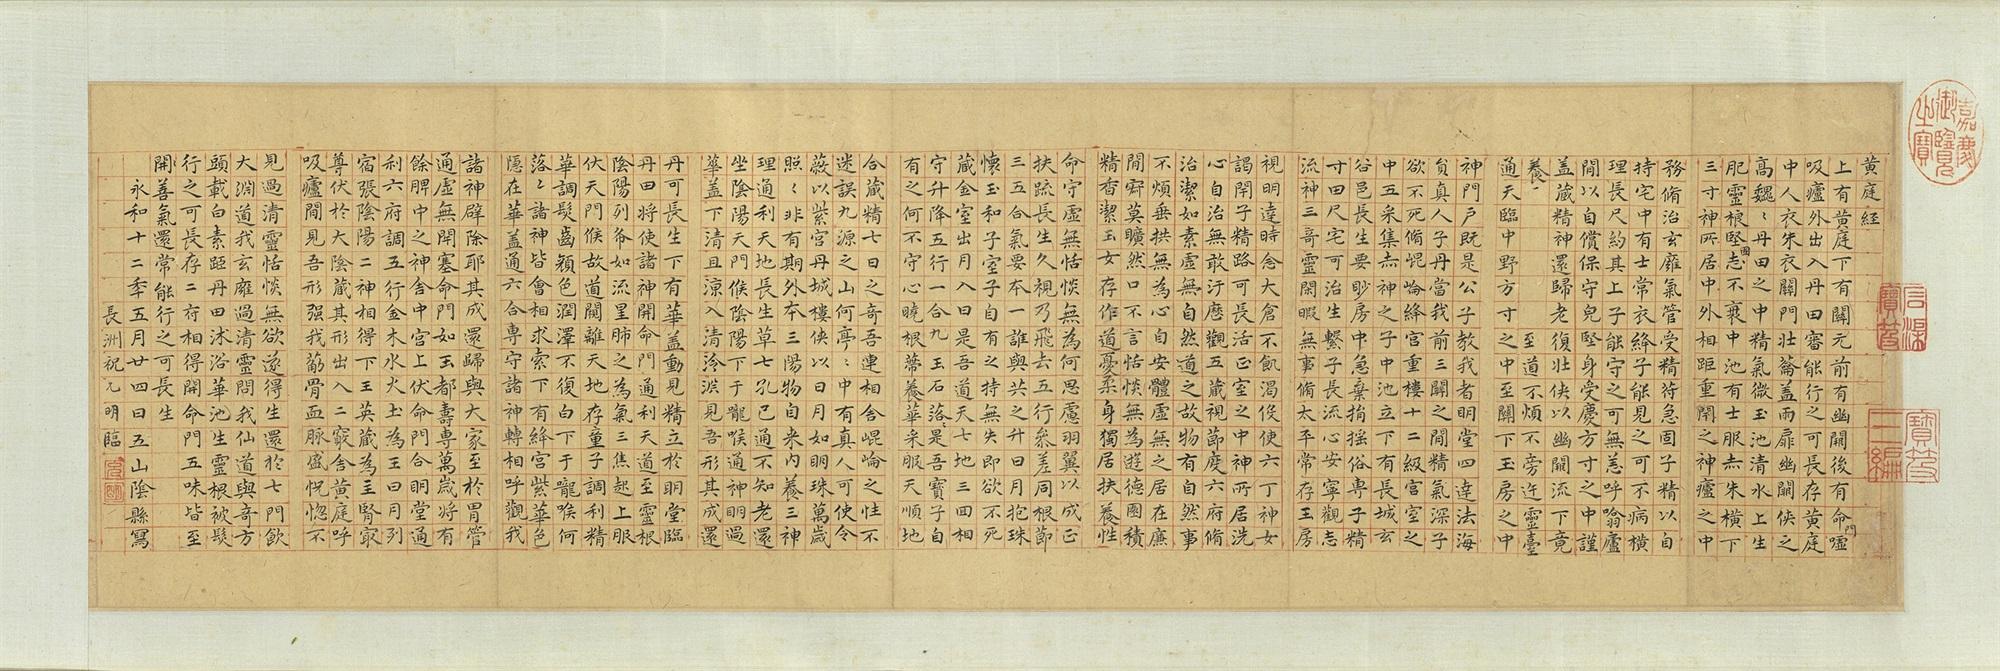 嘉慶御覽之寶
石渠寶笈
寶笈三編
黃庭經
上有黃庭下有關元前有幽闕後有命門噓
吸廬外出入丹田審能行之可長存黃庭
中人衣朱衣關門壯蘥蓋兩扉幽闕俠之
高魏〻丹田之中精氣微玉池清水上生
肥靈根堅固志不衰中池有士服赤朱橫下
三寸神所居中外相距重閉之神廬之中
務脩治玄癰氣管受精符急固子精以自
持宅中有士常衣絳子能見之可不病橫
理長尺約其上子能守之可無恙呼噏廬
間以自償保守完堅身受慶方寸之中謹
蓋藏精神還歸老復壯俠以幽闕流下竟
養〻至道不煩不旁迕靈臺
通天臨中野方寸之中至關下玉房之中
神門戶既是公子教我者明堂四達法海
員真人子丹當我前三關之間精氣深子
欲不死脩崐崘絳宮重樓十二級宮室之
中五采集赤神之子中池立下有長城玄
谷邑長生要眇房中急棄捐搖俗專子精
寸田尺宅可治生繫子長流心安寧觀志
流神三奇靈閑暇無事脩太平常存玉房
視明達時念大倉不飢渴役使六丁神女
謁閉子精路可長活正室之中神所居洗
心自治無敢汙歷觀五藏視節度六府脩
治潔如素虛無自然道之故物有自然事
不煩垂拱無為心自安體虛無之居在廉
間寂莫曠然口不言恬惔無為遊德園積
精香潔玉女存作道憂柔身獨居扶養性
命守虛無恬惔無為何思慮羽翼以成正
扶疏長生久視乃飛去五行參差同根節
三五合氣要本一誰與共之升日月抱珠
懷玉和子室子自有之持無失即欲不死
藏金室出月入日是吾道天七地三回相
守升降五行一合九玉石落〻是吾寶子自
有之何不守心曉根蒂養華采服天順地
合藏精七日之奇吾連相舍崐崘之性不
迷誤九源之山何亭〻中有真人可使令
蔽以紫宮丹城樓俠以日月如明珠萬歲
照〻非有期外本三陽物自來內養三神
可長生下有華蓋動見精立於明堂臨
丹田將使諸神開命門通利天道至靈根
陰陽列布如流星肺之為氣三焦起上服
伏天門候故道闚離天地存童子調利精
華調髮齒顏色潤澤不復白下于嚨喉何
落〻諸神皆會相求索下有絳宮紫華色
隱在華蓋通六合專守諸神轉相呼觀我
諸神辟除耶其成還歸與大家至於胃管
通虛無閉塞命門如玉都壽專萬歲將有
餘脾中之神舍中宮上伏命門合明堂通
利六府調五行金木水火土為王日月列
宿張陰陽二神相得下玉英藏為主腎最
尊伏於大陰藏其形出入二竅舍黃庭呼
吸廬間見吾形强我筋骨血脉盛怳惚不
見過清靈恬惔無欲遂得生還於七門飲
大淵道我玄癰過清靈問我仙道與奇方
頭載白素距丹田沐浴華池生靈根被髮
行之可長存二府相得開命門五味皆至
開善氣還常能行之可長生
永和十二年五月廿四日五山陰縣寫
長洲祝允明臨